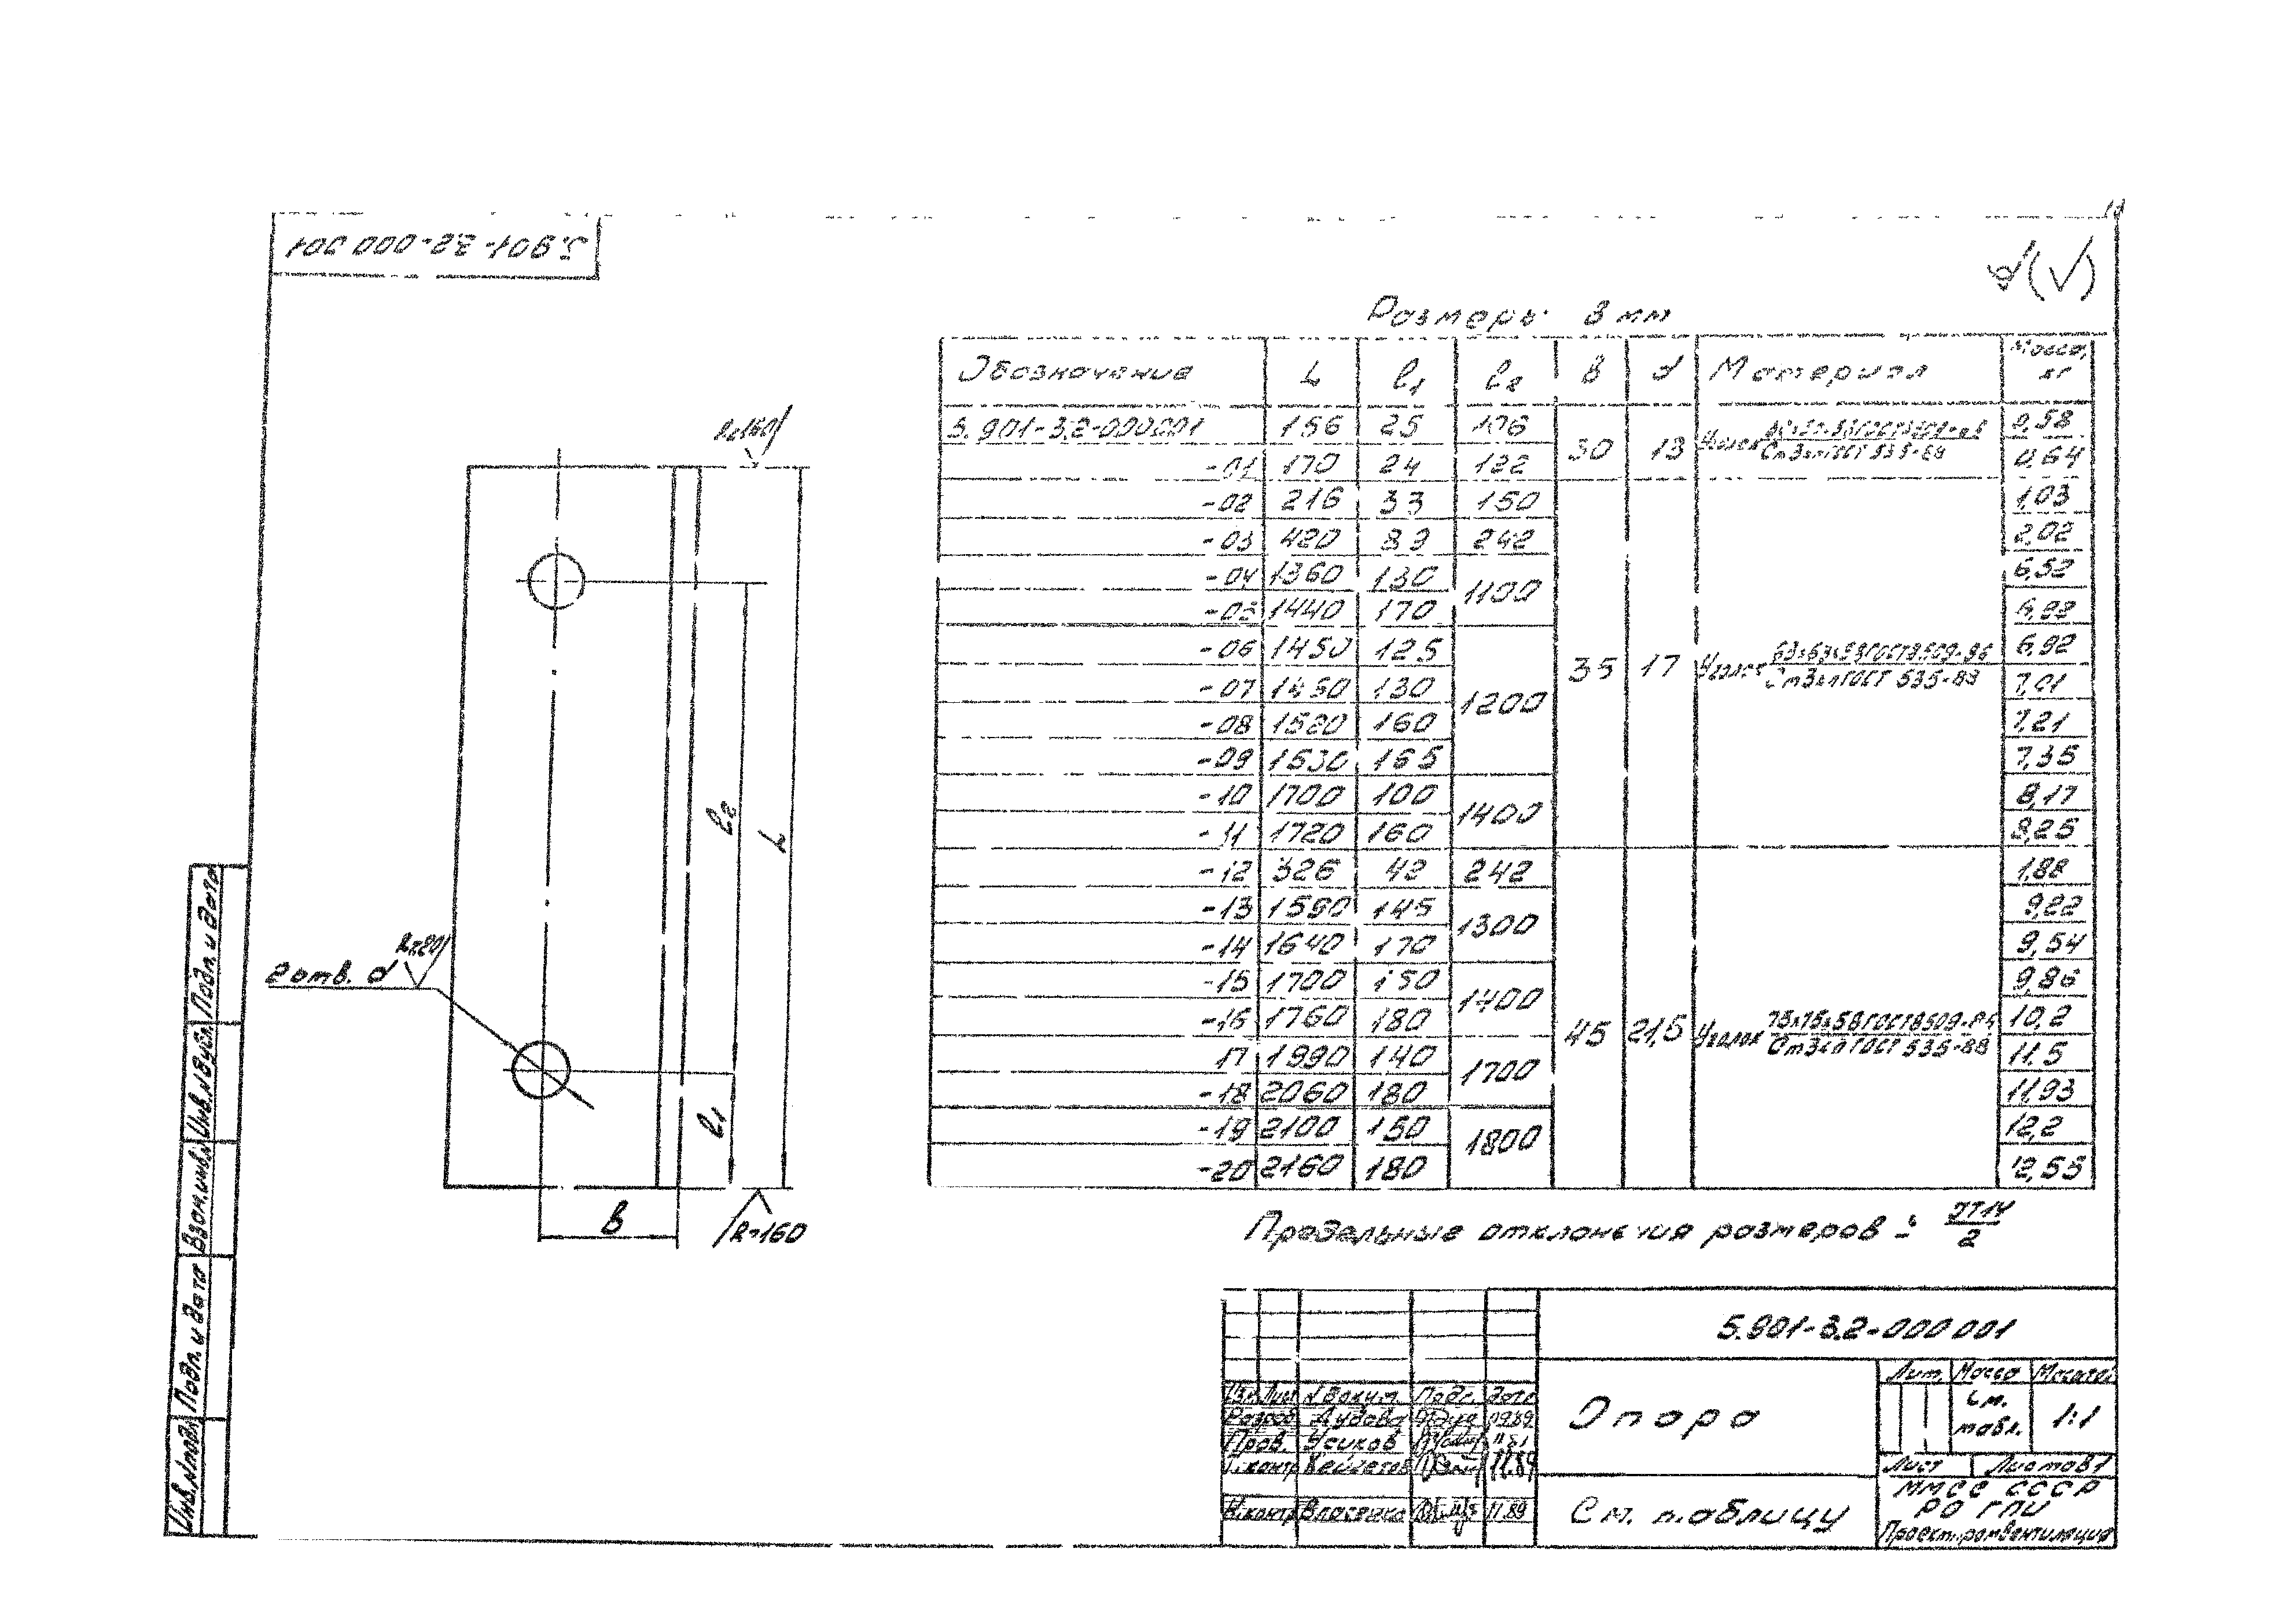 5.901-3.2-000 001
Размеры в мм
Обозначение L l1 l2 В d Материал Масса, кг
5.901-3.2-000001 156 25 106 30 13 Уголок Ст3кп ГОСТ 535-88 0,58
-01 170 24 122 0,64
-02 216 33 150 35 17 Уголок 63х63х5 ГОСТ 8509-86 Ст3кп ГОСТ 535-88 1,03
-03 420 89 242 2,02
-04 1360 130 1100 6,52
-05 1440 170
-06 1450 125 1200 6,92
-07 130 7,01
-08 1520 160 7,21
-09 1530 165 7,35
-10 1700 100 1400 8,17
-11 1720 160 8,25
-12 326 42 242 45 21,5 Уголок 75х75х5 ГОСТ 8509-86 Ст3кп ГОСТ 535-88 1,88
-13 1590 145 1300 9,22
-14 1640 170 9,54
-15 1700 150 1400 9,86
-16 1760 180 10,2
17 1990 140 1700 11,5
-18 2060 180 11,93
-19 2100 150 1800 12,2
-20 2160 180 12,55
Rz160
l2
L
2 отв. d
Rz80
l1
В
Rz160
Предельные отклонения размеров ± IT14/2
5.901-3.2-000 001
Изм. Лист N докум. Подп. Дата
Разраб. 09.89
Пров. Усиков
Т.контр. 11.89
Н.контр. Власенко 11.89
Опора
См. таблицу
Лит. Масса Масштаб
См. табл. 1:1
Лист Листов 1
ММСС СССР
РО ГПИ
Проектпромвентиляция
Подп. и дата
Инв. N дубл.
Взам. инв. N
Подп. и дата
Инв. N подл.